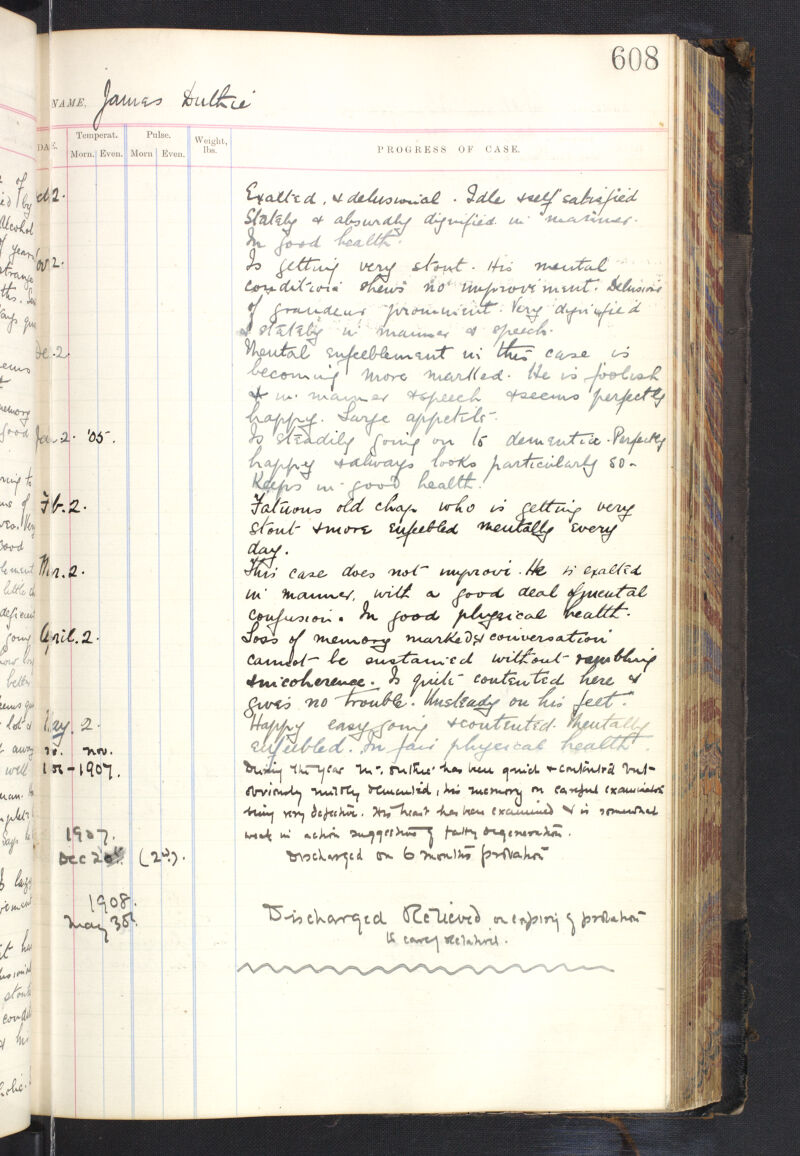 608
NAME, James Duthie
DATE.
Temperat.
Pulse.
Weight, lbs.
PROGRESS OF CASE.
Morn.
Even.
Morn
Even.
Oct 2.
Exalted, & delusional. Idle & self satisfied
Stately & absurdly dignified in manner.
In good health.
Nov 2.
Is getting very stout. His mental
condition shews no improvement. Delusions
of grandeur prominent. Very dignified
& stately in manner & speech.
Dec. 2.
Mental enfeeblement in this case is
becoming more marked. He is foolish
& in manner & speech & seems perfectly
happy. Large appetite.
Jan 2. '05.
Is steadily going on to dementia. Perfectly
happy & always looks particularly so.
Keeps in good health.
Feb. 2.
Fatuous old chap who is getting very
stout & more enfeebled mentally every
day.
Mar. 2.
This case does not improve. He is exalted
in manner, with a good deal of mental
confusion. In good physical health.
April. 2.
Loss of memory marked & conversation
cannot be sustained without rambling
& incoherence. Is quite contented here &
gives no trouble. Unsteady on his feet.
May 2.
Happy easy going & contented. Mentally
enfeebled. In fair physical health.
nov.
1907.
During the year Mr. Duthie has been quiet & contented but
obviously mildly demented, his memory on careful examination
being very defective. His heart has been examined & is somewhat
weak in action suggestive of fatty degeneration.
1907.
Dec 20th (2d).
Discharged on 6 months probation
1908.
May 30th
Discharged Relieved on expiry of probation
to care of relatives.